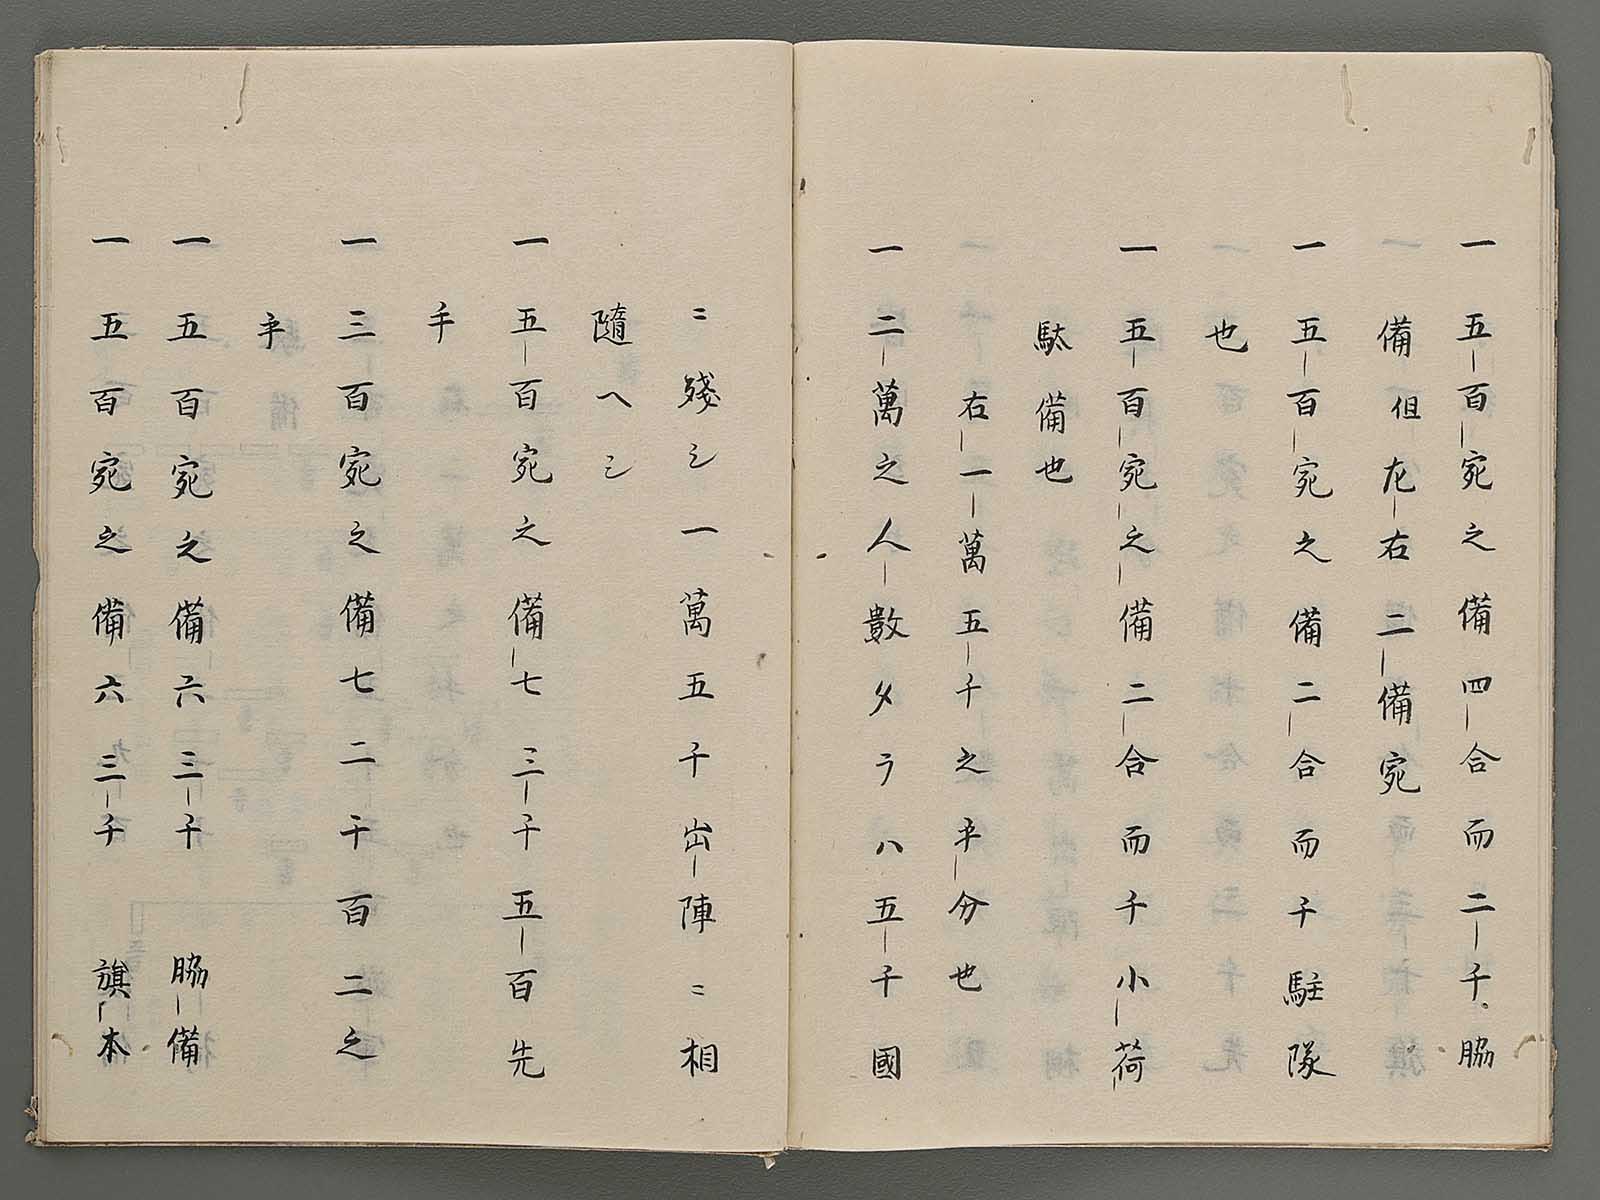 一五百宛之備四合而二千脇
備但左右二備宛
一五百宛之備二合而千駐隊
也
一五百宛之備二合而千小荷
駄備也
右一萬五千之手分也
一二萬之人數タラハ五千國
ニ殘シ一萬五千出陣ニ相
隨ヘシ
一五百宛之備七三千五百先
手
一三百宛之備七二千百二之
手
一五百宛之備六三千 脇備
一五百宛之備六三千 旗本